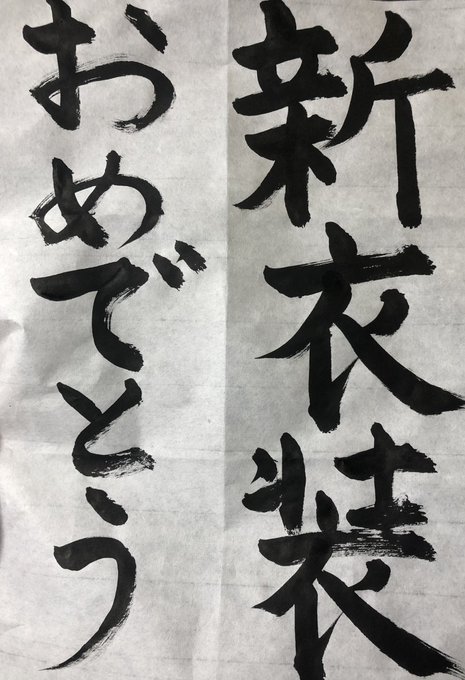 新衣装
おめでとう